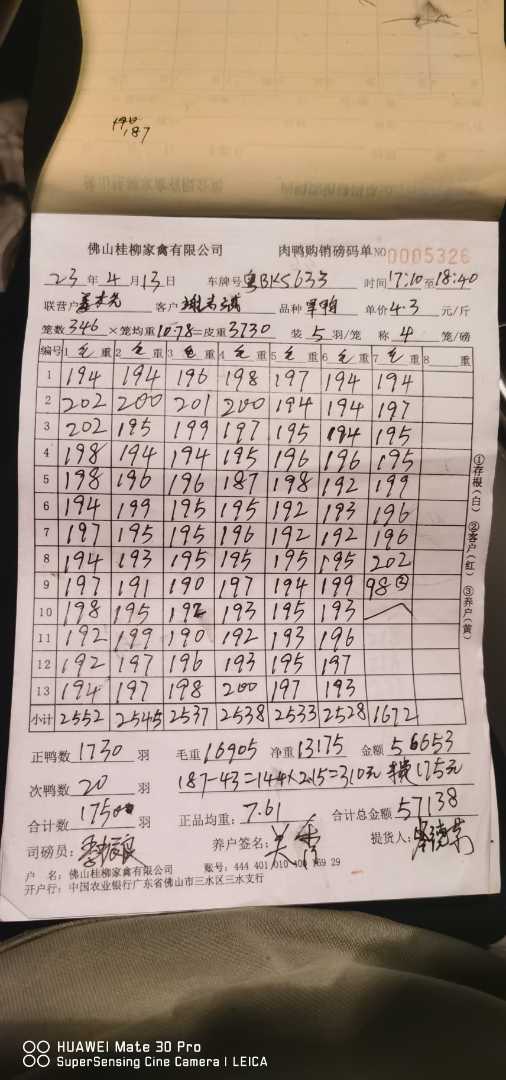 194
187
佛山桂柳家禽有限公司 肉鸭购销磅码单 NO 0005326
23 年 4 月 13 日 车牌号 粤BK5633 时间 17:10 至 18:40
联营户 客户 品种 单价 4.3 元/斤
笼数 346 ×笼均重 10.78 =皮重 3730 装 5 羽/笼 称 4 笼/磅
编号 1 毛 重 2 毛 重 3 毛 重 4 毛 重 5 毛 重 6 毛 重 7 毛 重 8 重
1 194 194 196 198 197 194 194
2 202 200 201 200 194 194 197
3 202 195 199 197 195 194 195
4 198 194 194 195 196 196 195
5 198 196 196 187 198 192 199
6 194 199 195 195 192 193 196
7 197 195 195 196 192 192 196
8 194 193 195 195 195 195 202
9 197 191 190 197 194 199 98②
10 198 195 192 193 195 193
11 192 199 190 192 193 196
12 192 197 196 193 195 197
13 194 197 198 200 197 193
小计 2552 2545 2537 2538 2533 2528 1672
①存根(白) ②客户(红) ③养户(黄)
正鸭数 1730 羽 毛重 16905 净重 13175 金额 56653
次鸭数 20 羽 187-43=144×2.15=310元 175元
合计数 1750 羽 正品均重: 7.61 合计总金额 57138
司磅员: 养户签名: 提货人:
户 名: 佛山桂柳家禽有限公司 账号: 444 401 010 400 169 29
开户行: 中国农业银行广东省佛山市三水区三水支行
HUAWEI Mate 30 Pro
SuperSensing Cine Camera | LEICA